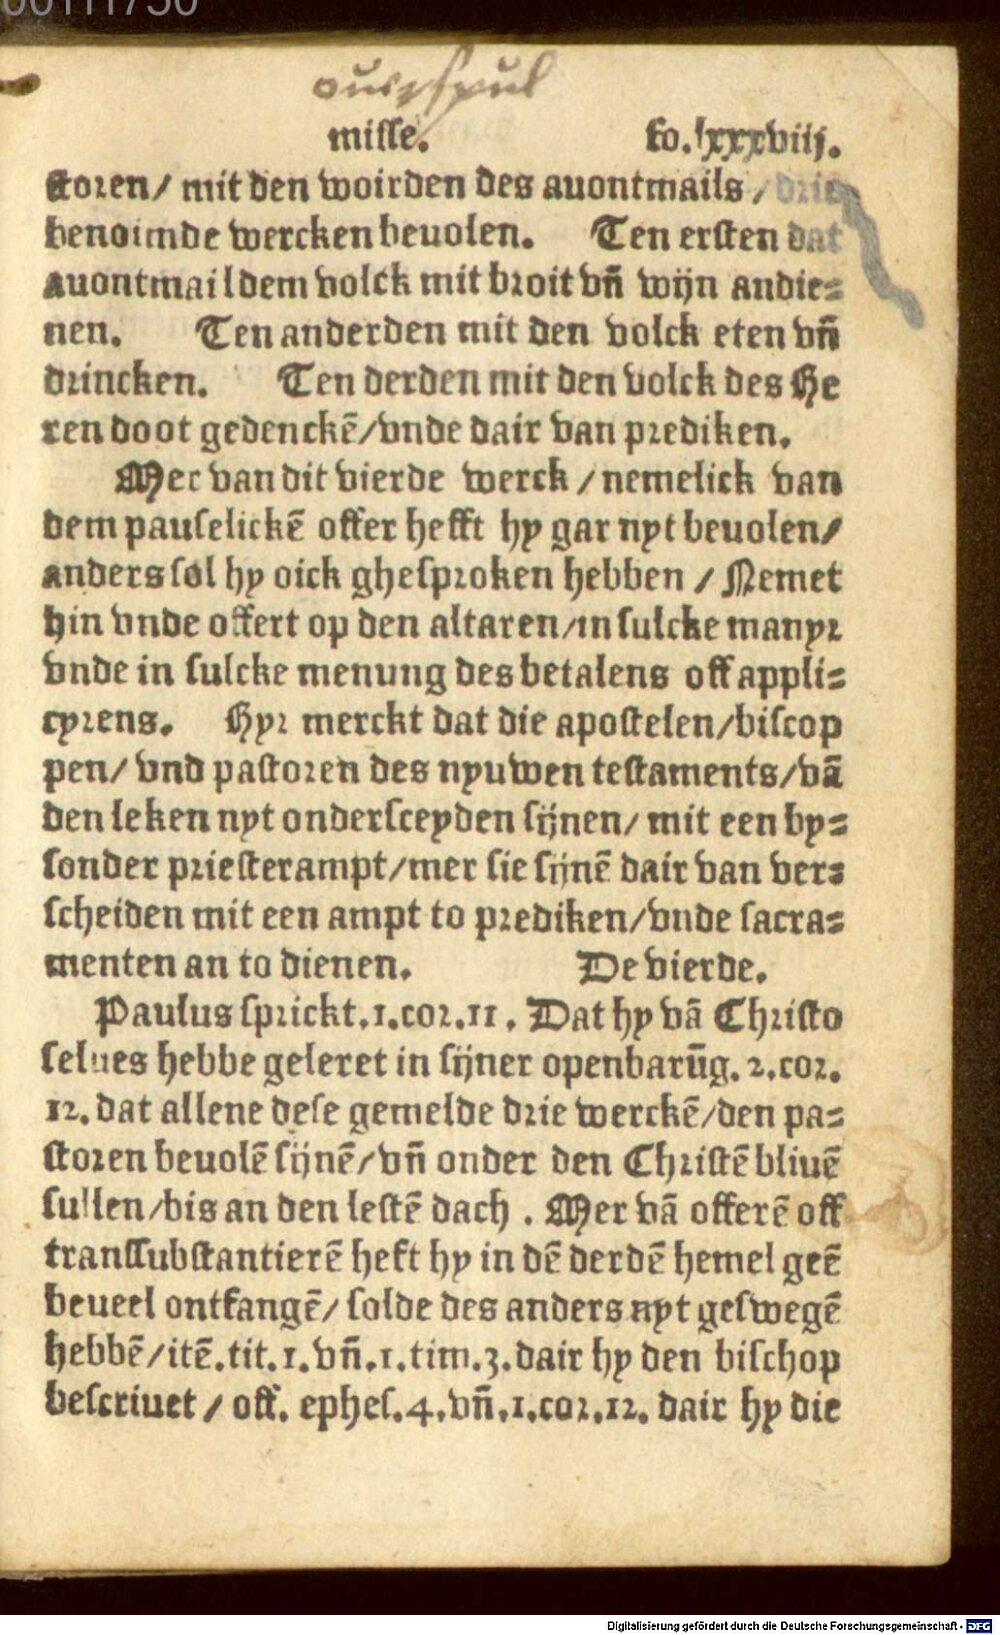 misse. fo.lxxxviij.
storen/ mit den woirden des auontmails/ drie
benoimde wercken beuolen. Ten ersten dat
auontmail dem volck mit broit vn̄ wijn andie⸗
nen. Ten anderden mit den volck eten vn̄
drincken. Ten derden mit den volck des He
ren doot gedenckē/vnde dair van prediken.
Mer van dit vierde werck/nemelick van
dem pauselickē offer hefft hy gar nyt beuolen/
anders sol hy oick ghesproken hebben/Nemet
hin vnde offert op den altaren/in sulcke manyr
vnde in sulcke menung des betalens off appli⸗
cyrens. Hyr merckt dat die apostelen/biscop
pen/ vnd pastoren des nyuwen testaments/vā
den leken nyt ondersceyden sijnen/ mit een by⸗
sonder priesterampt/mer sie sijnē dair van ver⸗
scheiden mit een ampt to prediken/vnde sacra⸗
menten an to dienen. De vierde.
Paulus sprickt.1.cor.11. Dat hy vā Christo
selues hebbe geleret in sijner openbarūg. 2.cor.
12. dat allene dese gemelde drie werckē/den pa⸗
storen beuolē sijnē/vn̄ onder den Christē bliuē
sullen/bis an den lestē dach. Mer vā offerē off
transsubstantierē heft hy in dē derdē hemel geē
beueel ontfangē/ solde des anders nyt geswegē
hebbē/itē.tit.1.vn̄.1.tim.3.dair hy den bischop
bescriuet/ off. ephes.4.vn̄.1.cor.12. dair hy die
Digitalisierung gefördert durch die Deutsche Forschungsgemeinschaft - DFG